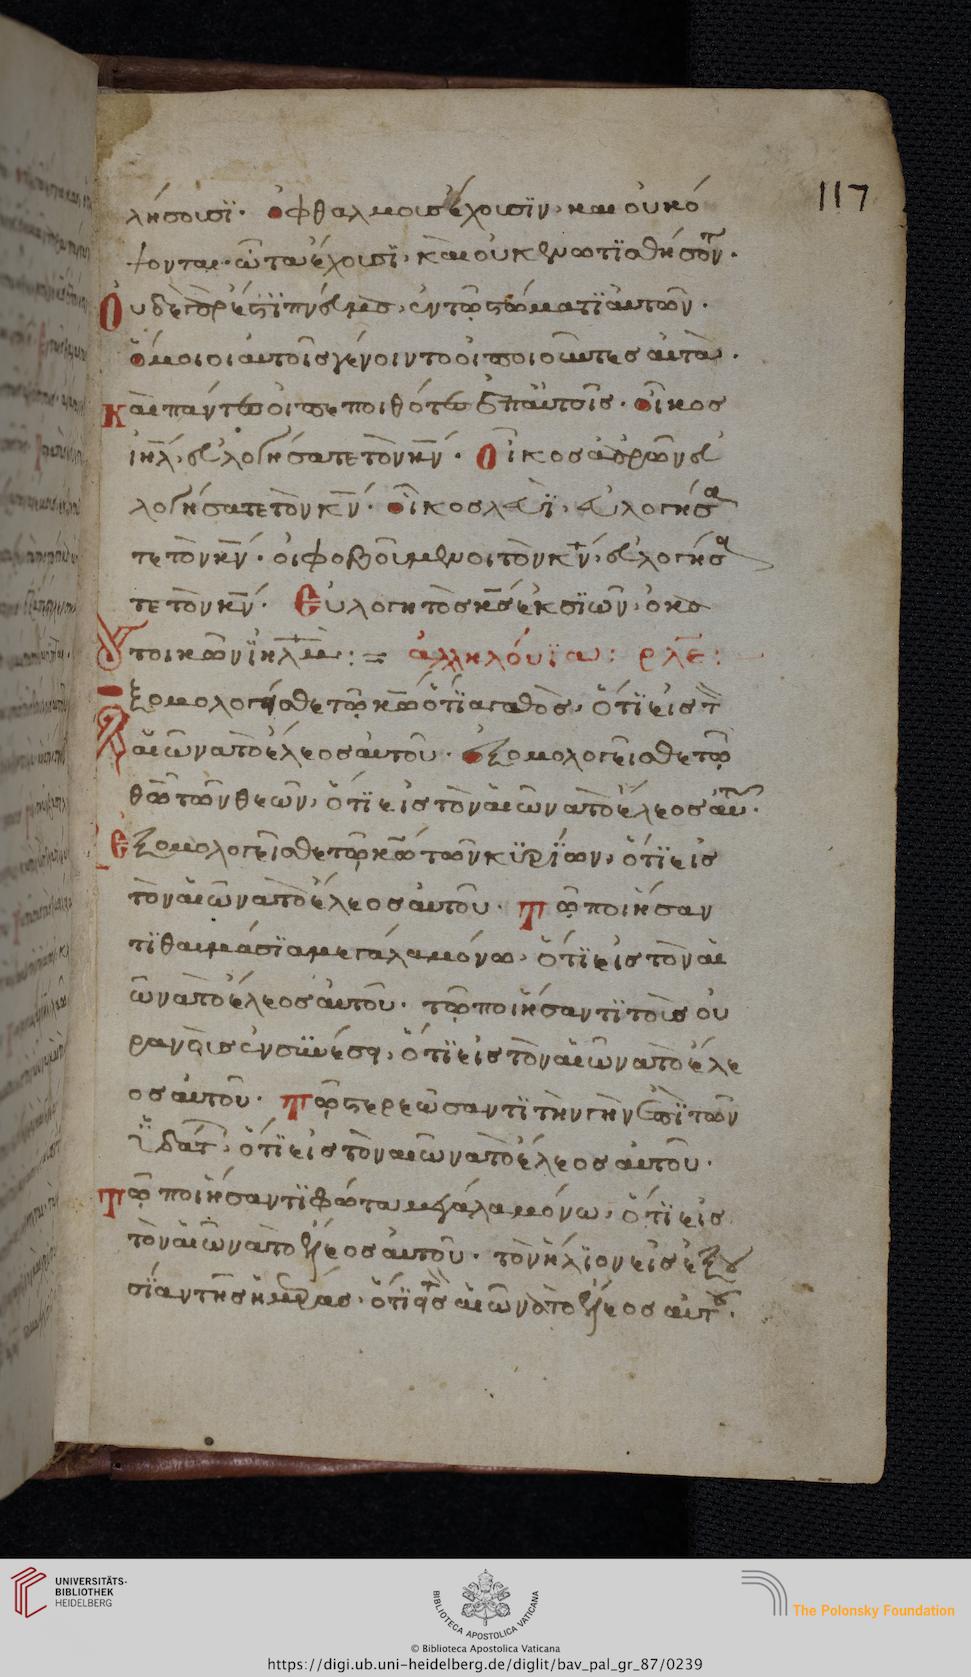 117
λήσουσϊ· ὀφθαλμοὺσ ἔχουσϊν, καὶ οὐκ ό
ψονται· ὦτα ἔχουσϊ, καὶ οὐκ ἐνωτϊσθήσοντ·
Οὐδὲ γάρ ἐστϊ πνεῦμα, ἐν τῷ στόματϊ αὐτῶν·
ὅμοιοι αὐτοῖσ γένοιντο οἱ ποιοῦντεσ αὐτὰ·
Καὶ πάντεσ οἱ πεποιθότεσ ἐπ αὐτοῖσ· οἶκοσ
ἰηλ, εὐλογήσατε τὸν κν· Οἶκοσ ἀαρῶν εὐ
λογήσατε τὸν κν· οἶκοσ λευϊ, εὐλογήσα
τε τὸν κν· οἱ φοβούμενοι τὸν κν, εὐλογήσα
τε τὸν κν· Εὐλογητὸσ κσ ἐκ σϊών, ὁ κα
τοικῶν ϊλημ: = ἀλληλούϊα: ρλε:
ξομολογεῖσθε τῷ κω ὅτϊ ἀγαθὸσ, ὅτϊ εἰσ τ
αἰῶνα τὸ ἔλεοσ αὐτοῦ· ἐξομολογεῖσθε τῷ
θω τῶν θεῶν, ὅτϊ εἰσ τὸν αἰῶνα τὸ ἔλεοσ αὐτ·
ἐξομολογεῖσθε τῷ κω τῶν κϋρίων, ὅτϊ εἰσ
τὸν αἰῶνα τὸ ἔλεοσ αὐτοῦ· Τῷ ποιήσαν
τϊ θαυμάσϊα μεγάλα μόνω, ὅτϊ εἰσ τὸν αἰ
ῶνα τὸ ἔλεοσ αὐτοῦ· τῷ ποιήσαντϊ τοὺσ οὐ
ρανοὺσ ἐν συνέσει, ὅτϊ εἰσ τὸν αἰῶνα τὸ ἔλε
οσ αὐτοῦ· Τῷ στερεώσαντϊ τὴν γῆν ἐπὶ τῶν
ϋδάτ, ὅτϊ εἰσ τὸν αἰῶνα τὸ ἔλεοσ αὐτοῦ·
Τῷ ποιήσαντϊ φῶτα μεγάλα μόνω, ὅτϊ εἰσ
τὸν αἰῶνα τὸ ἔλεοσ αὐτοῦ· τὸν ἥλϊον εἰσ ἐξου
σίαν τῆσ ἡμέρασ, ὅτϊ εἰσ τ αἰῶνα τὸ ἔλεοσ αὐτοῦ·
UNIVERSITÄTS-
BIBLIOTHEK
HEIDELBERG
BIBLIOTECA APOSTOLICA VATICANA
The Polonsky Foundation
© Biblioteca Apostolica Vaticana
https://digi.ub.uni-heidelberg.de/diglit/bav_pal_gr_87/0239